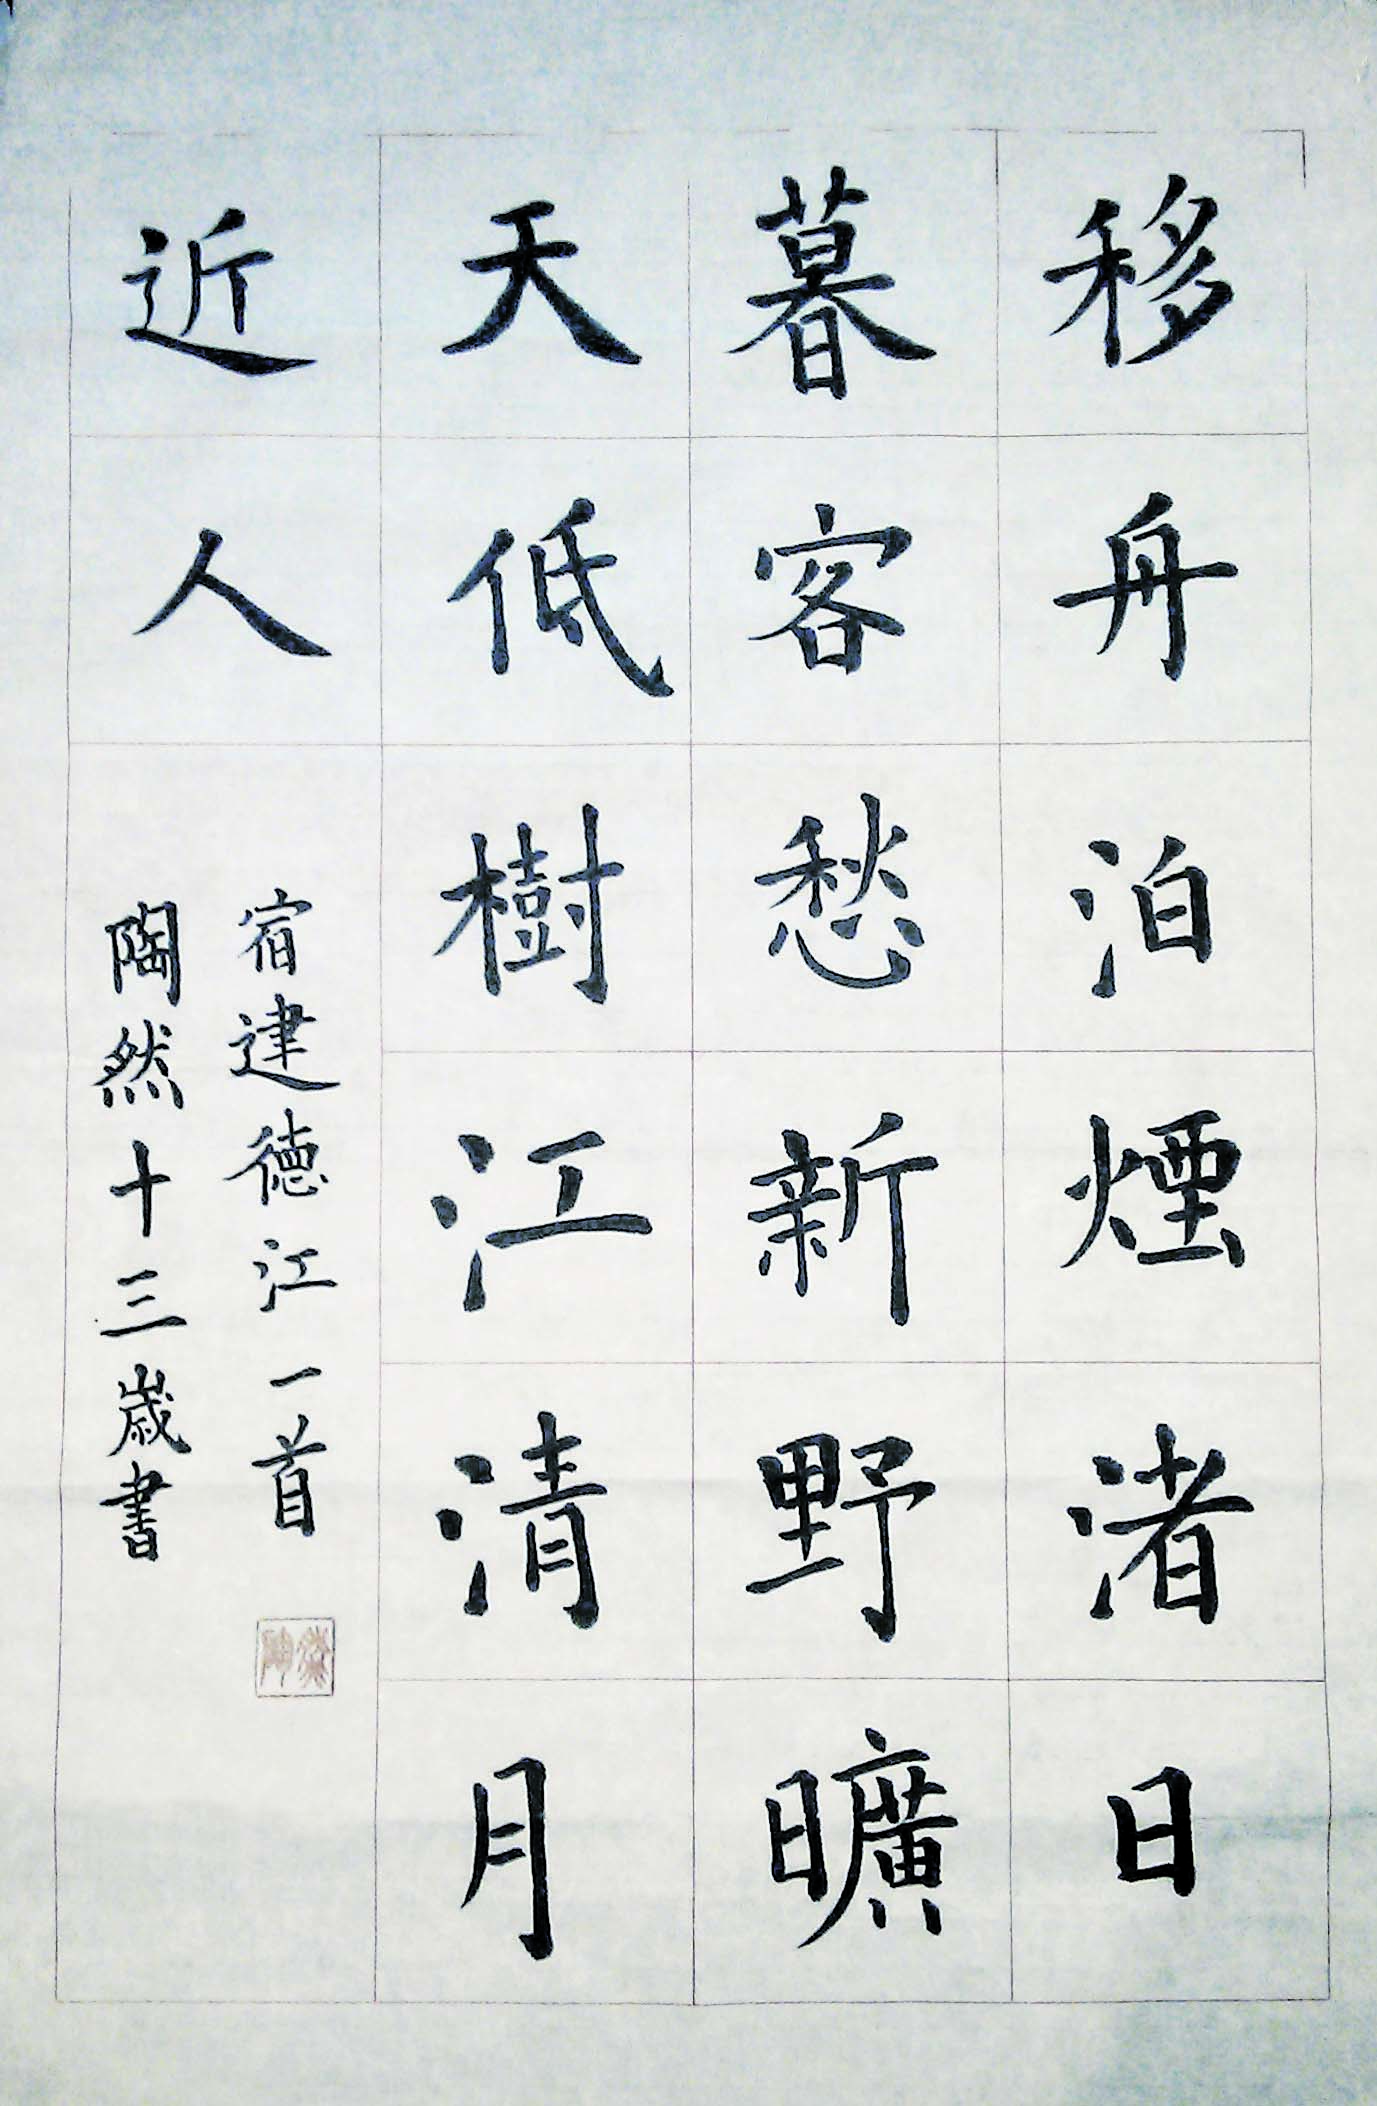 移舟泊煙渚日
暮客愁新野曠
天低樹江清月
近人
宿建德江一首
陶然十三歲書